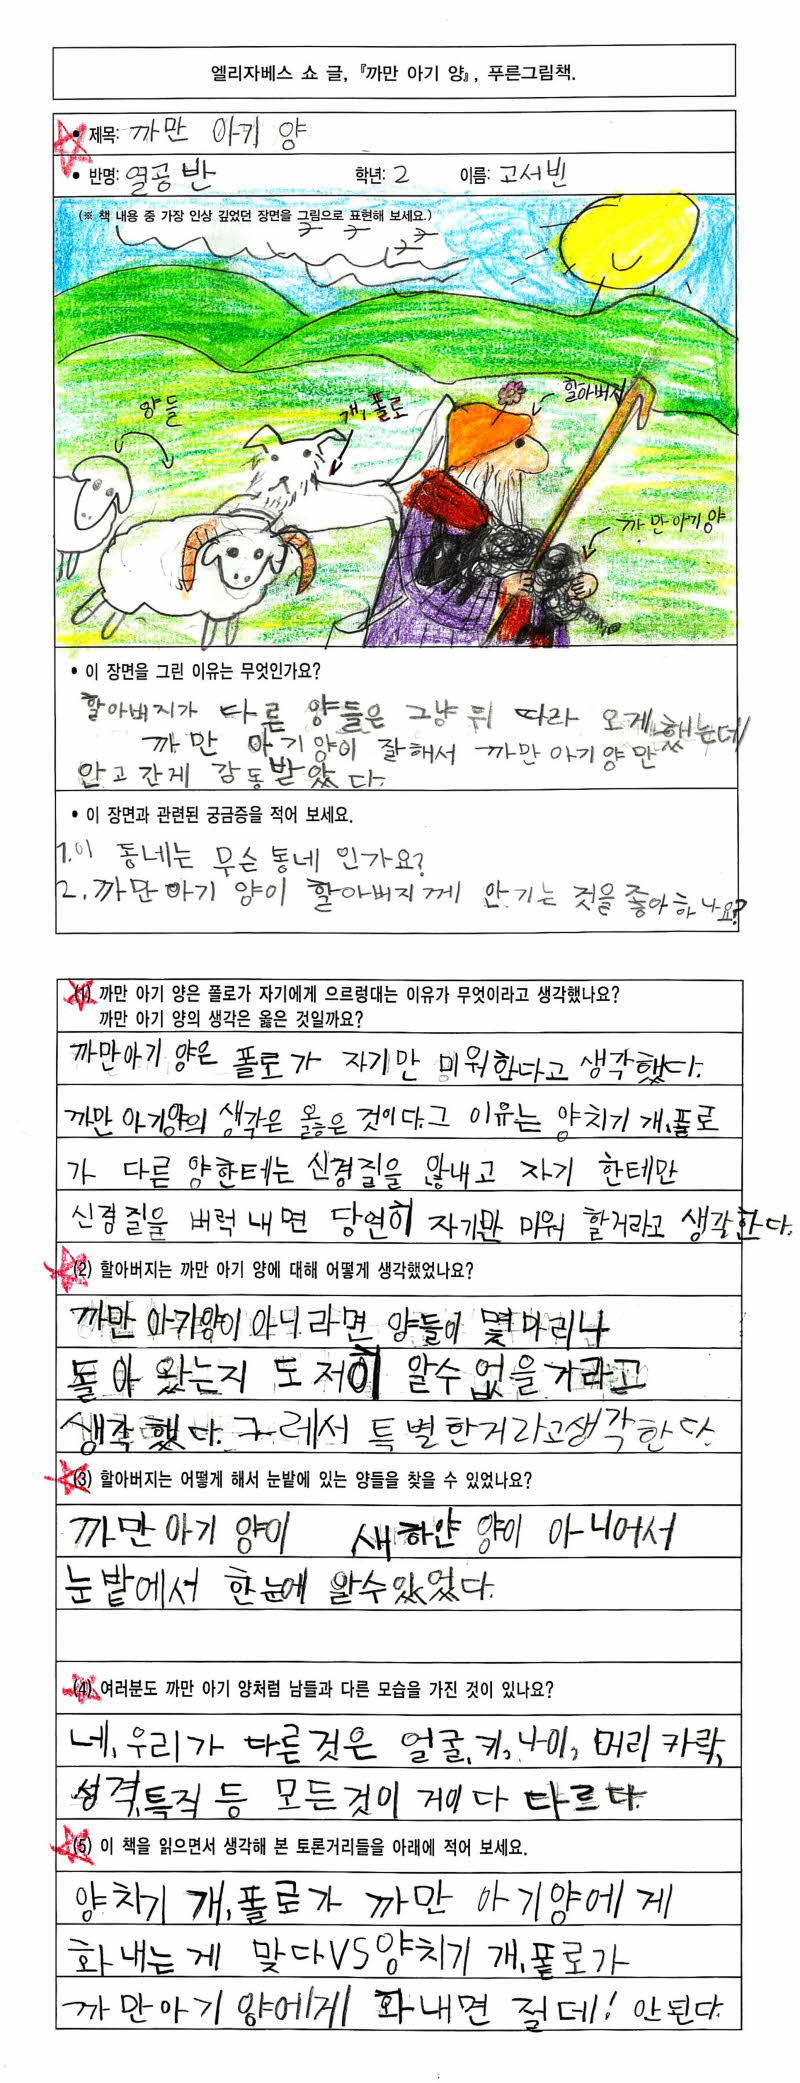 엘리자베스 쇼 글, 『까만 아기 양』, 푸른그림책.
• 제목: 까만 아기 양
• 반명: 열공반 학년: 2 이름: 고서빈
(※ 책 내용 중 가장 인상 깊었던 장면을 그림으로 표현해 보세요.)
할아버지
양들
개, 폴로
까만아기양
• 이 장면을 그린 이유는 무엇인가요?
할아버지가 다른 양들은 그냥 뒤 따라 오게 했는데
까만 아기양이 잘해서 까만 아기양만
안고 간게 감동받았다.
• 이 장면과 관련된 궁금증을 적어 보세요.
1.이 동네는 무슨 동네 인가요?
2. 까만 아기 양이 할아버지께 안기는 것을 좋아하나요?
(1) 까만 아기 양은 폴로가 자기에게 으르렁대는 이유가 무엇이라고 생각했나요?
까만 아기 양의 생각은 옳은 것일까요?
까만아기 양은 폴로가 자기만 미워한다고 생각했다.
까만 아기양의 생각은 옳은 것이다.그 이유는 양치기 개,폴로
가 다른 양한테는 신경질을 않내고 자기 한테만
신경질을 버럭 내면 당연히 자기만 미워 할거라고 생각한다.
(2) 할아버지는 까만 아기 양에 대해 어떻게 생각했었나요?
까만 아기양이 아니라면 양들이 몇마리나
돌아 왔는지 도저히 알수 없을거라고
생각했다. 그레서 특별한거라고생각한다.
(3) 할아버지는 어떻게 해서 눈밭에 있는 양들을 찾을 수 있었나요?
까만아기 양이 새하얀 양이 아니어서
눈밭에서 한눈에 알수있었다.
(4) 여러분도 까만 아기 양처럼 남들과 다른 모습을 가진 것이 있나요?
네, 우리가 다른것은 얼굴,키,나이, 머리카락,
성격,특직 등 모든것이 거이다 다르다.
(5) 이 책을 읽으면서 생각해 본 토론거리들을 아래에 적어 보세요.
양치기 개,폴로가 까만 아기양에게
화내는게 맞다VS양치기 개,폴로가
까만아기 양에게 화내면 절데! 안된다.